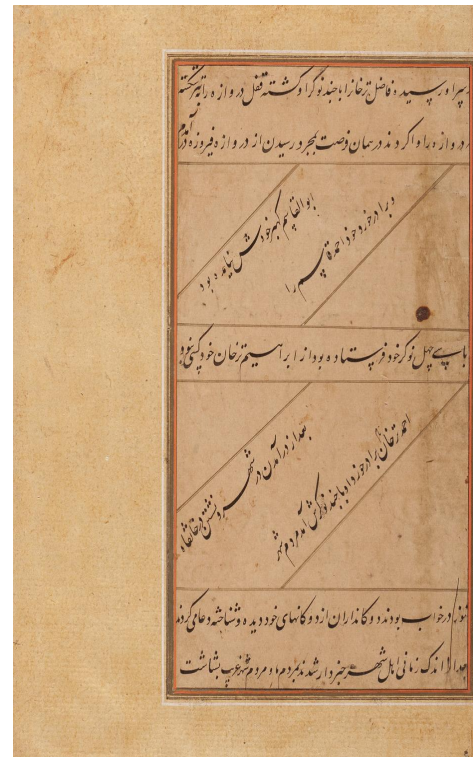 سر او رسیده فاضل ترخانرا با چند نوکر او کشته قفل دروازه را بتبر شکسته
دروازه را وا کردند در همان فرصت بمجرد رسیدن از دروازه فیروزه در آمدم
ابو القاسم کهبر خودش نیامده بود
و برادر خورد خود احمد قاسم را
با سی چهل نوکر خود فرستاده بود از ابراهیم ترخان خود کسی نبود
بعد از در آمدن در شهر و نشستن در خانقاه
احمد ترخان برادر خورد او با چند نوکرش آمد مردم شهر
هنوز در خواب بودند دوکانداران از دوکانهای خود دیده و شناخته دعا می کردند
بعد از اندک زمانی اهل شهر خبردار شدند بمردم ما و مردم شهر غریب بشاشت